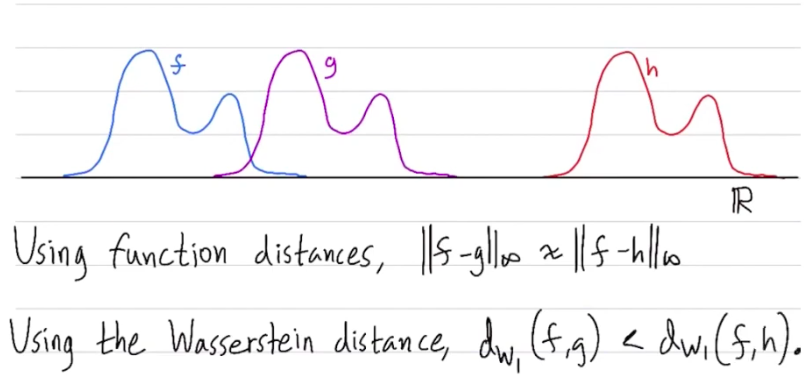 f g h
ℝ
Using function distances, ||f-g||∞ ≈ ||f-h||∞
Using the Wasserstein distance, d_{W_1}(f,g) < d_{W_1}(f,h).